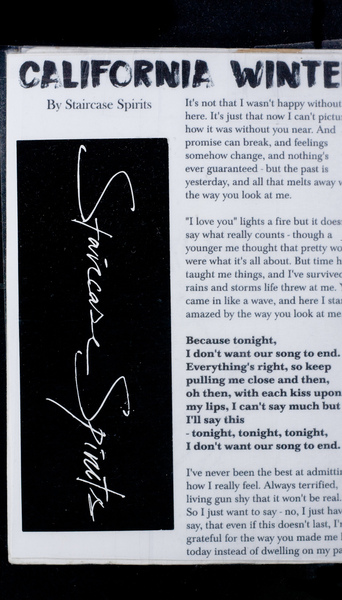 CALIFORNIA
By Staircase Spirits
Staircase Spirits
It's not that I wasn't happy without
here. It's just that now I can't
how it was without you near. And
promise can break, and feelings
somehow change, and nothing's
ever guaranteed - but the past is
yesterday, and all that melts away
the way you look at me.
"I love you" lights a fire but it
say what really counts - though a
younger me thought that pretty
were what it's all about. But time
taught me things, and I've survived
rains and storms life threw at me.
came in like a wave, and here I
amazed by the way you look at me
Because tonight,
I don't want our song to end.
Everything's right, so keep
pulling me close and then,
oh then, with each kiss upon
my lips, I can't say much but
I'll say this
- tonight, tonight, tonight,
I don't want our song to end.
I've never been the best at
how I really feel. Always terrified,
living gun shy that it won't be real.
So I just want to say - no, I just
say, that even if this doesn't last,
grateful for the way you made me
today instead of dwelling on my